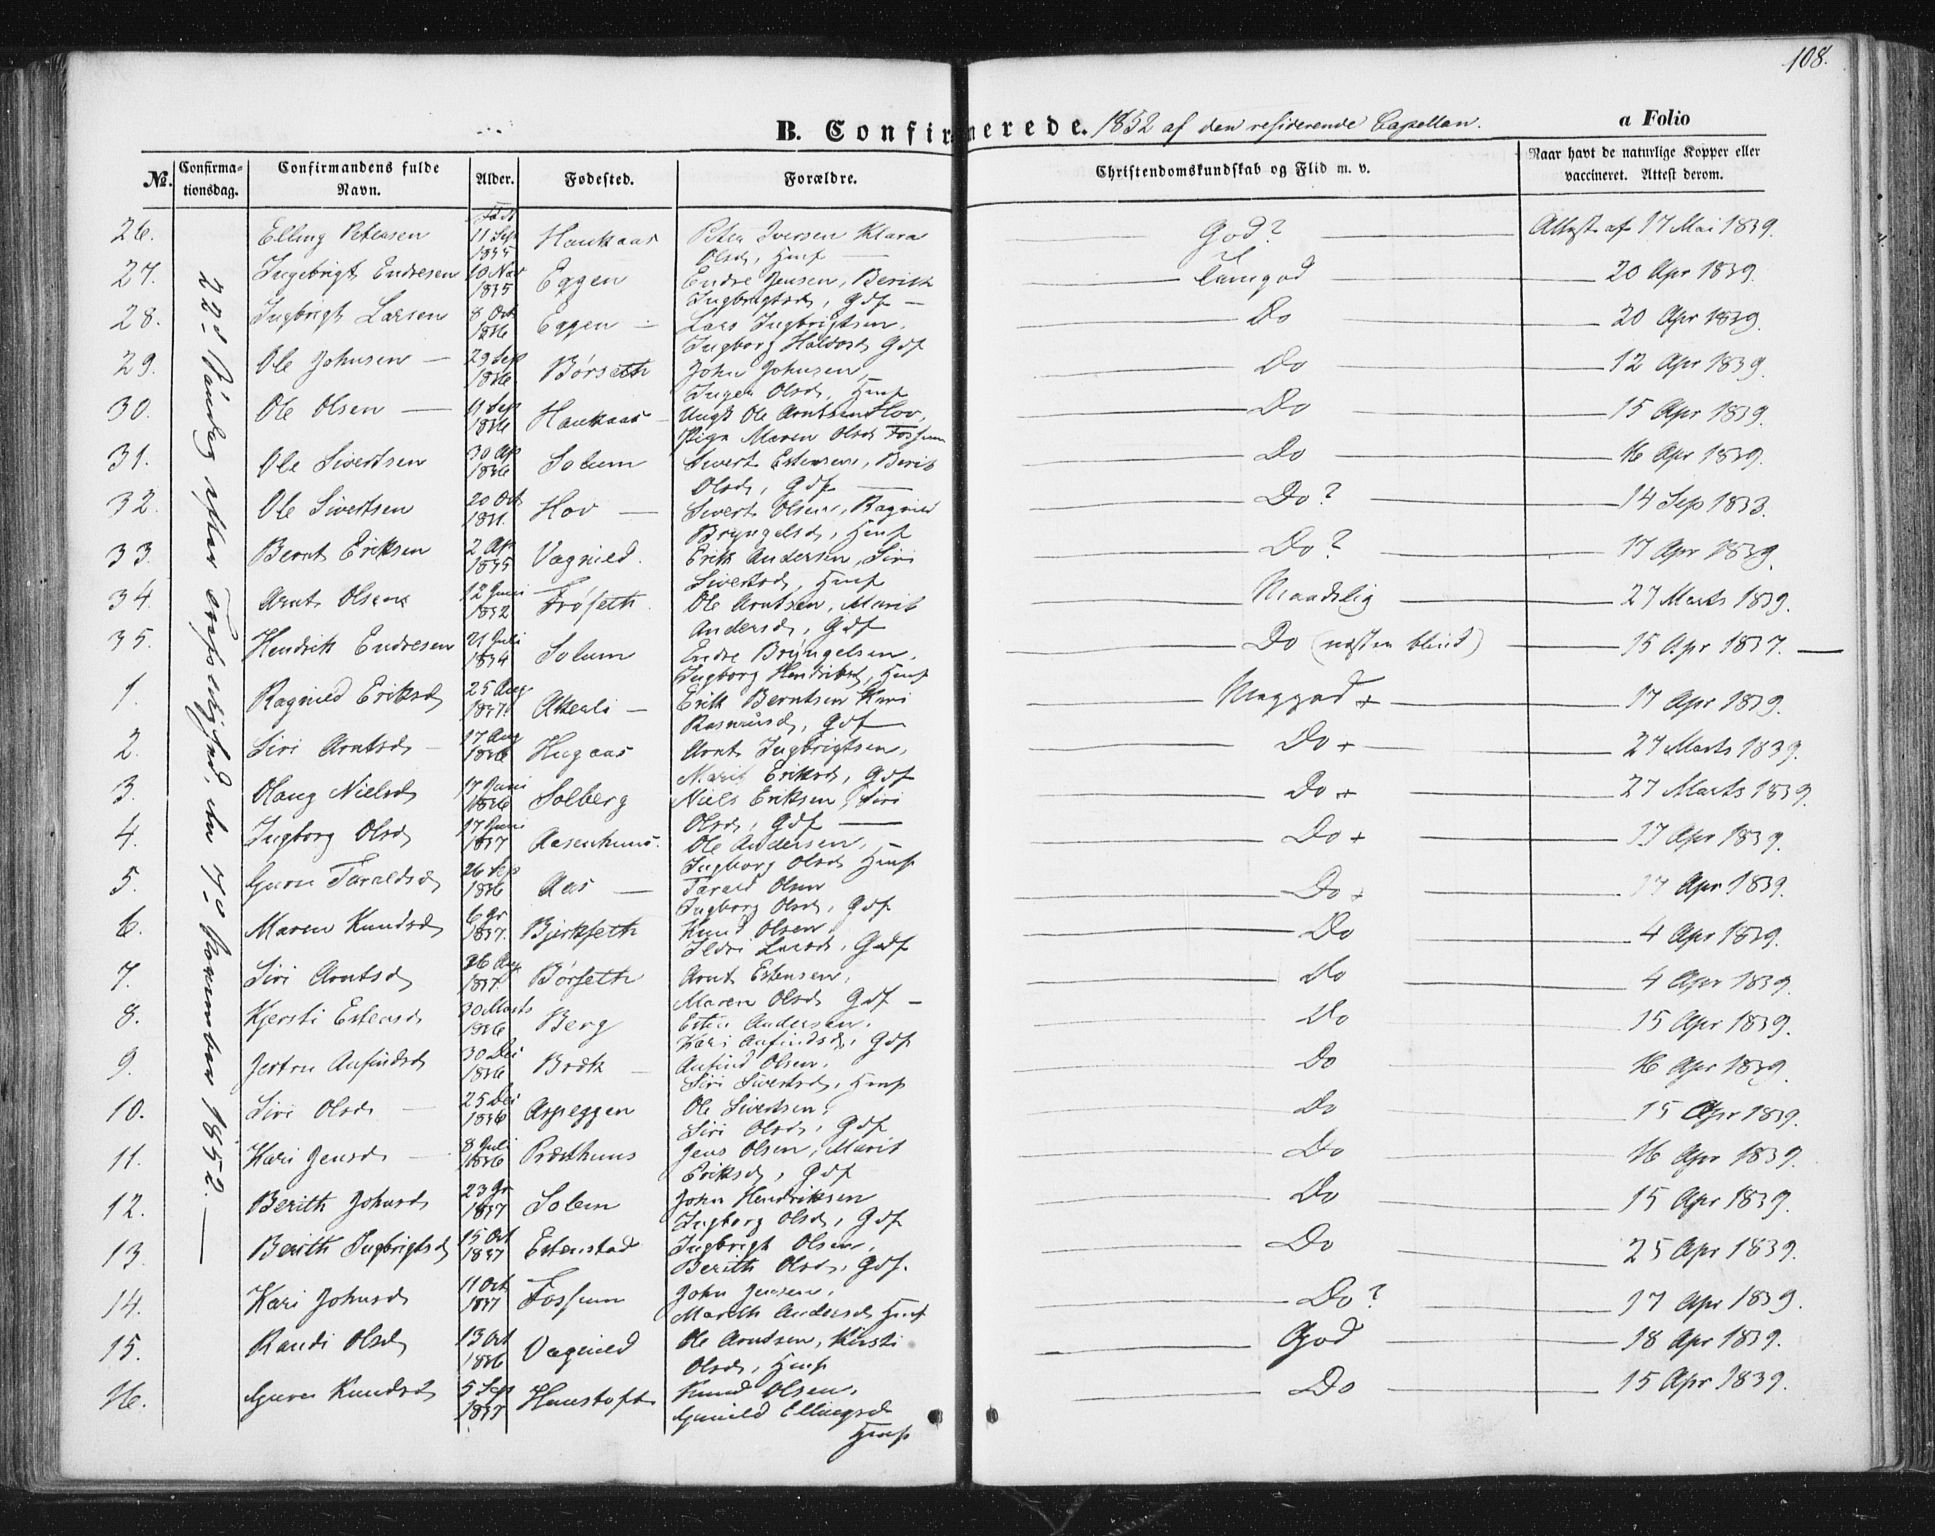 108.
B. Confirmerede. 1852 af den residerende Capellan. a Folio
No. Confirmationsdag. Confirmandens fulde Navn. Alder. Fødested. Forældre. Christendomskundskab og Flid m. v. Naar havt de naturlige Kopper eller vaccineret. Attest derom.
22d Søndag efter Trefoldighed, den 7d November 1852.
26. Elling Petersen 11 Sep 1835 Haukaas Peter Iversen Klara Olsd, Hmf God? Attest af 17 Mai 1839.
27. Ingebrigt Endresen 10 Nov 1835 Eggen Endre Jensen, Berith Ingbrigtsd, Gdf Temgod 20 Apr 1839.
28. Ingbrigt Larsen 8 Oct 1836 Eggen Lars Ingbrigtsen, Ingborg Haldosd Gdf Do 20 Apr 1839.
29. Ole Johnsen 29 Sep 1836 Børseth John Johnsen, Inger Olsd, Hmf Do 12 Apr 1839.
30. Ole Olsen 11 Sep 1836 Haukaas Ungk Ole Arntsen Hov, Pige Maren Olsd Fossum Do 15 Apr 1839.
31. Ole Sivertsen 30 Ap 1836 Solum Sivert Estensen, Berit Olsd, Gdf Do 16 Apr 1839.
32. Ole Sivertsen 20 Oct Hov Sivert Olsen, Ragnild Bryngelsd, Hmf Do? 14 Sep 1833.
33. Bernt Eriksen 2 Apr 1835 Vagnild. Erik Andersen, Siri Sivertsd, Hmf Do? 17 Apr 1839.
34. Arnt Olsen 12 Juni 1832 Frøseth. Ole Arntsen, Marit Andersd, Gdf Maadelig 27 Marts 1839.
35. Hendrik Endresen 21 Juli 1834 Solum Endre Bryngelsen, Ingborg Hendriksd, Hmf Do (næsten blind) 15 Apr 1837.
1. Ragnild Eriksd 25 Aug 1837 Erik Berntsen Kari Rasmusd, Gdf Meggod + 17 Apr 1839.
2. Siri Arntsd 17 Aug 1836 Hugaas Arnt Ingbrigtsen, Marit Eriksd, Gdf Do + 27 Marts 1839.
3. Olaug Nielsd 17 Juni 1836 Solberg Niels Eriksen, Siri Olsd, Gdf Do + 27 Marts 1839.
4. Ingborg Olsd 17 Juni 1837 Aasenhuus. Ole Andersen, Ingborg Olsd Hmf Do + 17 Apr 1839.
5. Guru Taraldsd 26 Sep 1836 Aas Tarald Olsen Ingborg Olsd, Gdf Do + 17 Apr 1839.
6. Maren Knudsd 6 Jr 1837. Bjerkseth Knud Olsen, Ildri Larsd, Gdf Do 4 Apr 1839.
7. Siri Arntsd 26 Aug 1837 Børseth Arnt Estensen, Maren Olsd Gdf Do 4 Apr 1839.
8. Kjersti Estensd 30 Marts 1836 Berg Esten Andersen, Kari Anfindsd, Gdf Do 15 Apr 1839.
9. Jertru Anfindsd 30 Dei 1836 Bræk Anfind Olsen, Siri Sivertsd, Hmf Do 16 Apr 1839.
10. Siri Olsd 25 Dei 1836 Aspeggen Ole Sivertsen, Siri Olsd, Gdf Do 15 Apr 1839.
11. Kari Jensd 8 Juli 1836 Præsthuus Jens Olsen, Marit Eriksd, Gdf Do 16 Apr 1839.
12. Berith Johnsd 23 Jr 1837 Solem John Hendriksen Ingborg Olsd, Gdf Do 15 Apr 1839.
13. Berith Ingbrigtsd 15 Oct 1837 Estenstad Ingbrigt Olsen, Berith Olsd, Gdf. Do 25 Apr 1839.
14. Kari Johnsd 11 Oct 1837 Fossum John Jensen, Marith Andersd Hmf Do? 17 Apr 1839.
15. Randi Olsd 13 Oct 1836 Vagnild Ole Arntsen, Kirsti Olsd, Hmf God 18 Apr 1839.
16. Guru Knudsd 5 Sep Haustoft Knud Olsen, Gunild Ellingsd Hmf Do 15 Apr 1839.